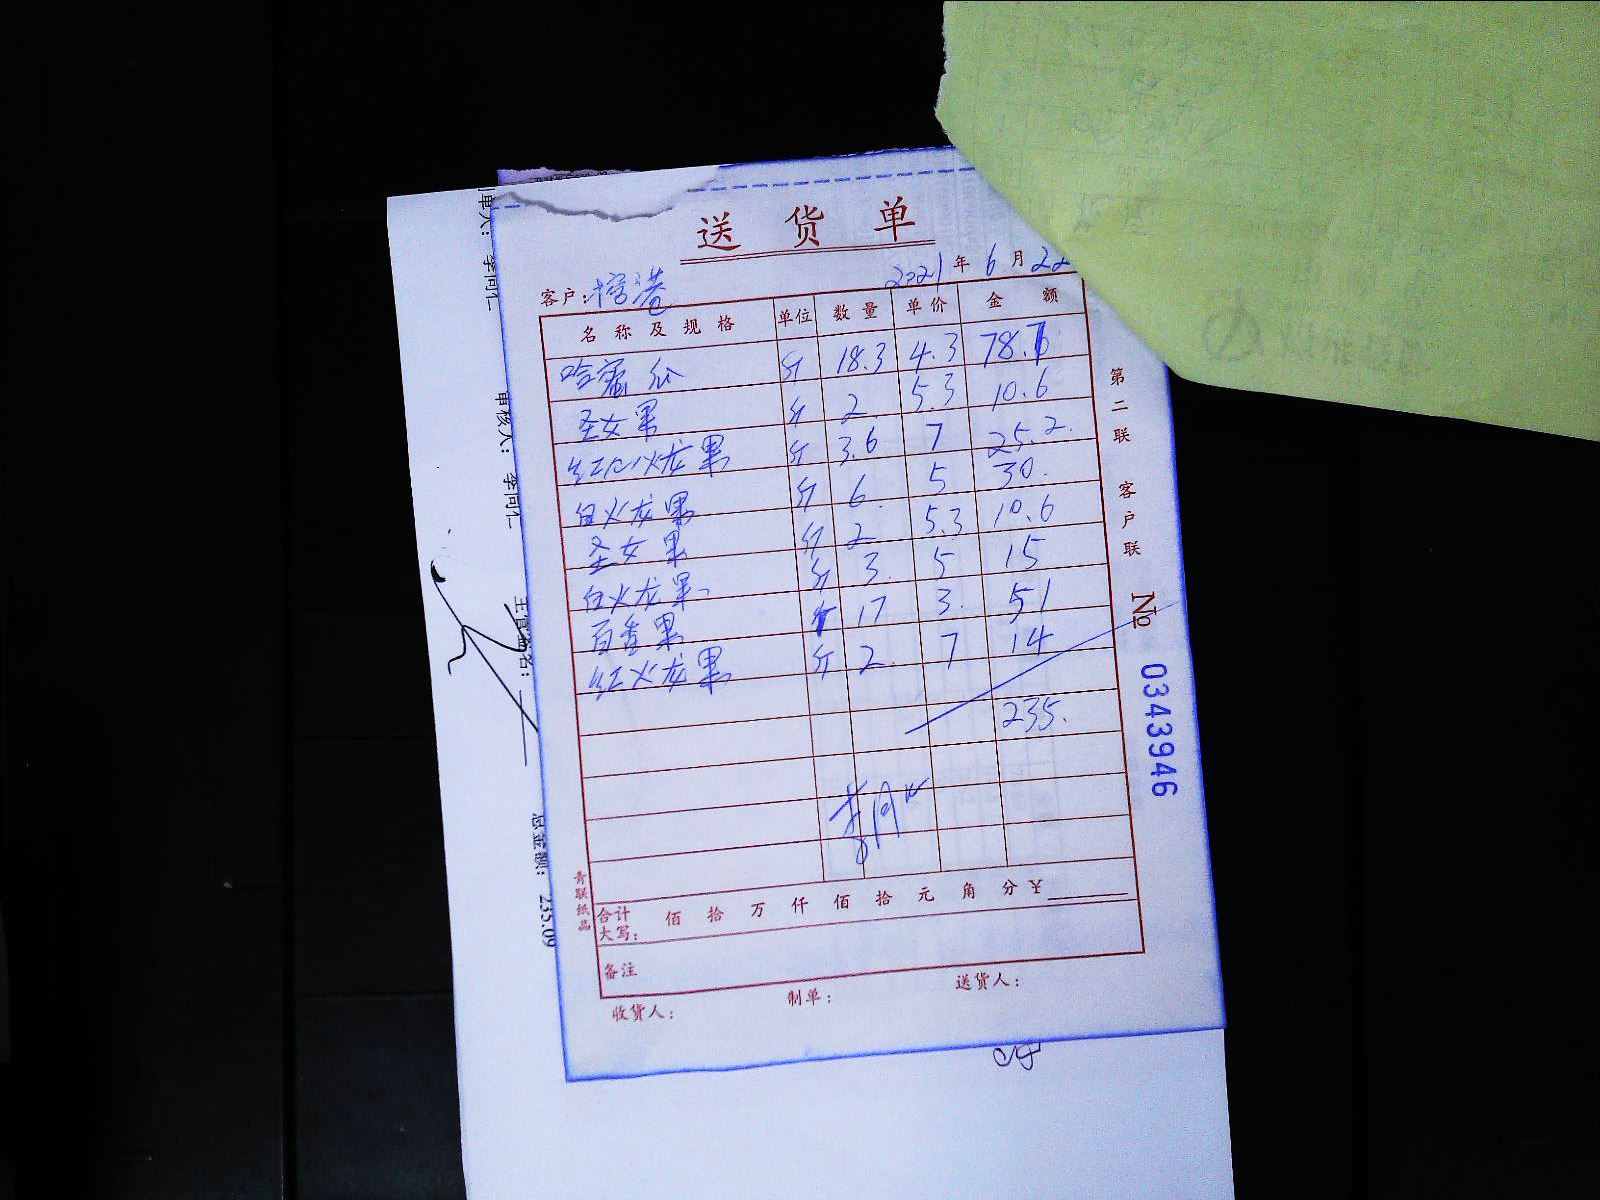 送货单
2021年6月22
客户:榕港
名称及规格 单位 数量 单价 金额
哈蜜瓜 斤 18.3 4.3 78.7
圣女果 斤 2. 5.3 10.6
红心火龙果 斤 3.6 7 25.2.
白火龙果 斤 6. 5 30.
圣女果 斤 2 5.3 10.6
白火龙果 斤 3. 5 15
百香果 斤 17 3. 51
红火龙果 斤 2. 7 14
235.
合计大写: 佰 拾 万 仟 佰 拾 元 角 分 ¥
备注
收货人: 制单: 送货人:
青联纸品
第二联 客户联 № 0343946
单人: 李同仁
审核人: 李同仁
主管签名:
总金额: 235.09